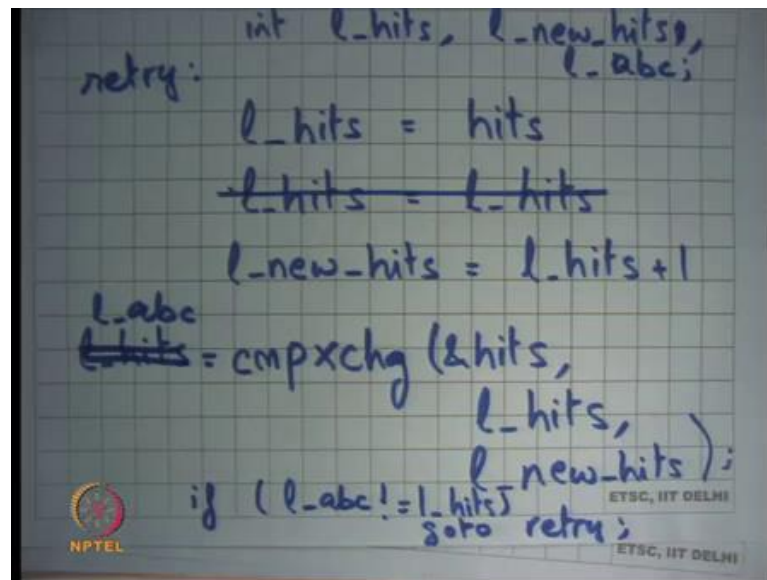 int l_hits, l_new_hits,
l_abc;
retry:
l_hits = hits
l_hits = l_hits
l_new_hits = l_hits + 1
l_abc
l_hits = cmpxchg (&hits,
l_hits,
l_new_hits);
if (l_abc != l_hits)
goto retry;
ETSC, IIT DELHI
NPTEL
ETSC, IIT DELHI